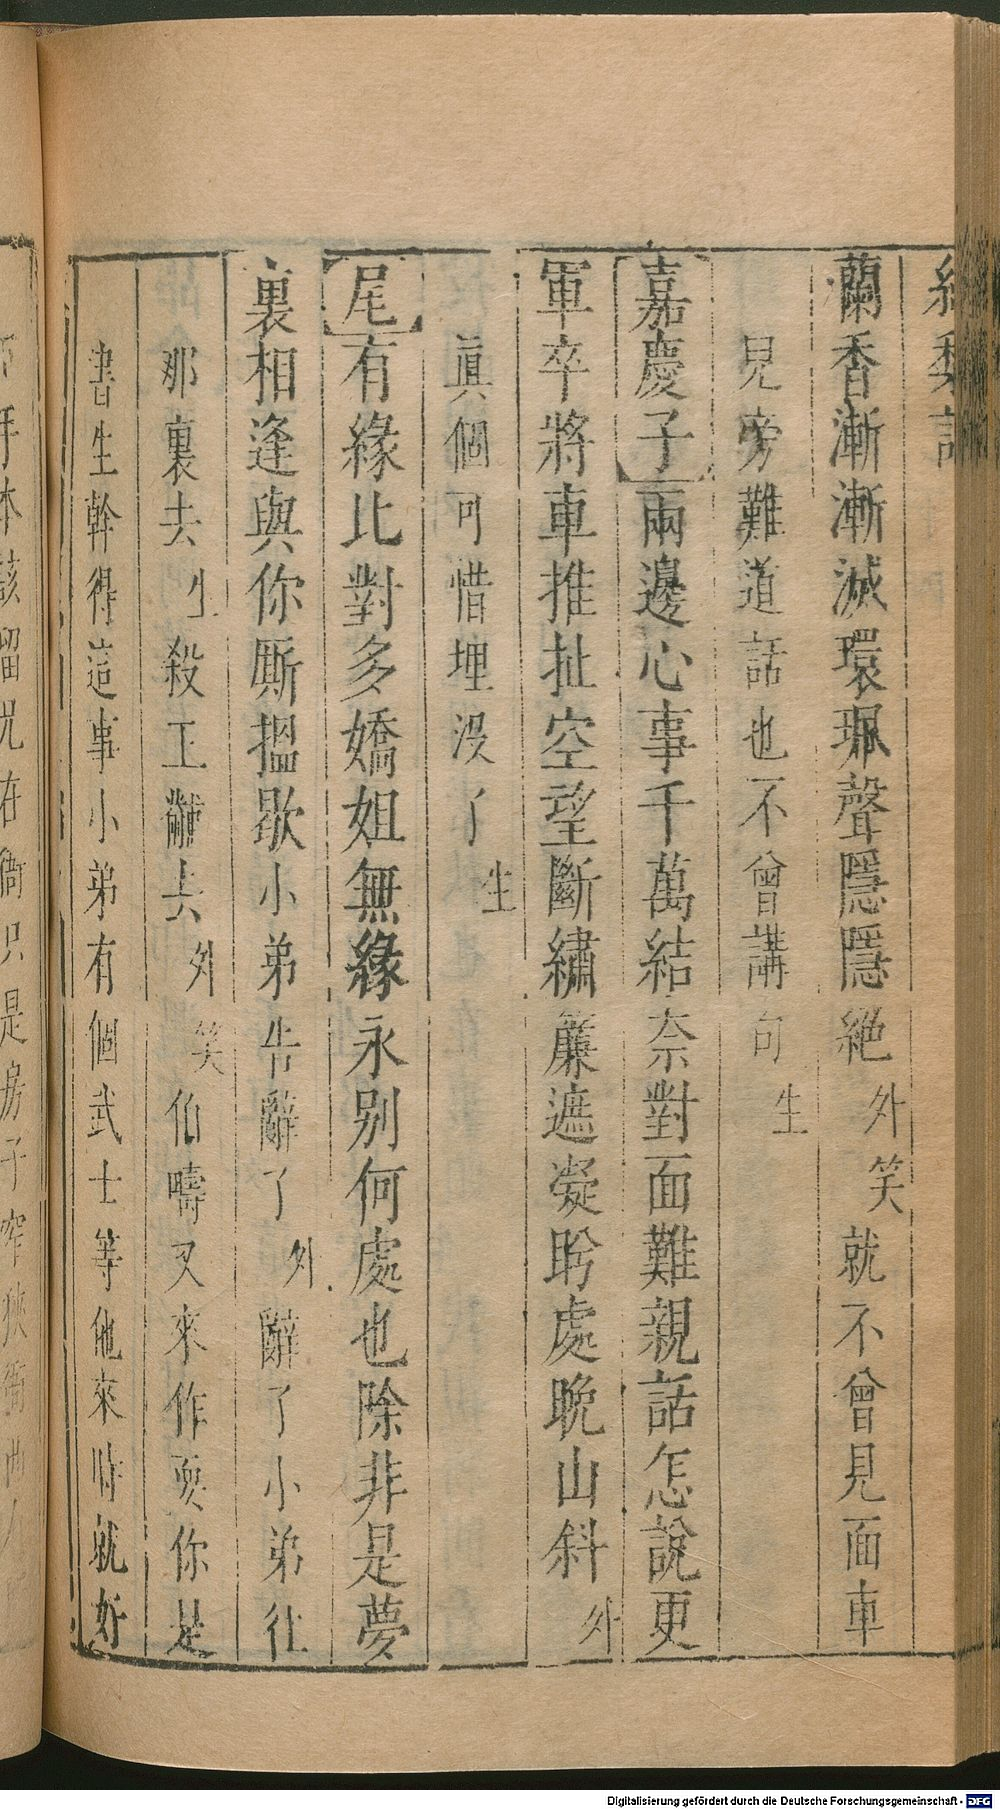 蘭香漸漸滅環珮聲隱隱絕外笑就不曾見面車
見旁難道話也不曾講句生
嘉慶子兩邊心事千萬結奈對面難親話怎說更
軍卒將車推扯空望斷繡簾遮凝盻處晚山斜外
真個可惜埋沒了生
尾有緣比對多嬌姐無緣永別何處也除非是夢
裏相逢與你厮搵歇小弟告辭了外辭了小弟往
那裏去生殺王黼去外笑伯疇又來作耍你是
書生幹得這事小弟有個武士等他來時就好
Digitalisierung gefördert durch die Deutsche Forschungsgemeinschaft - DFG